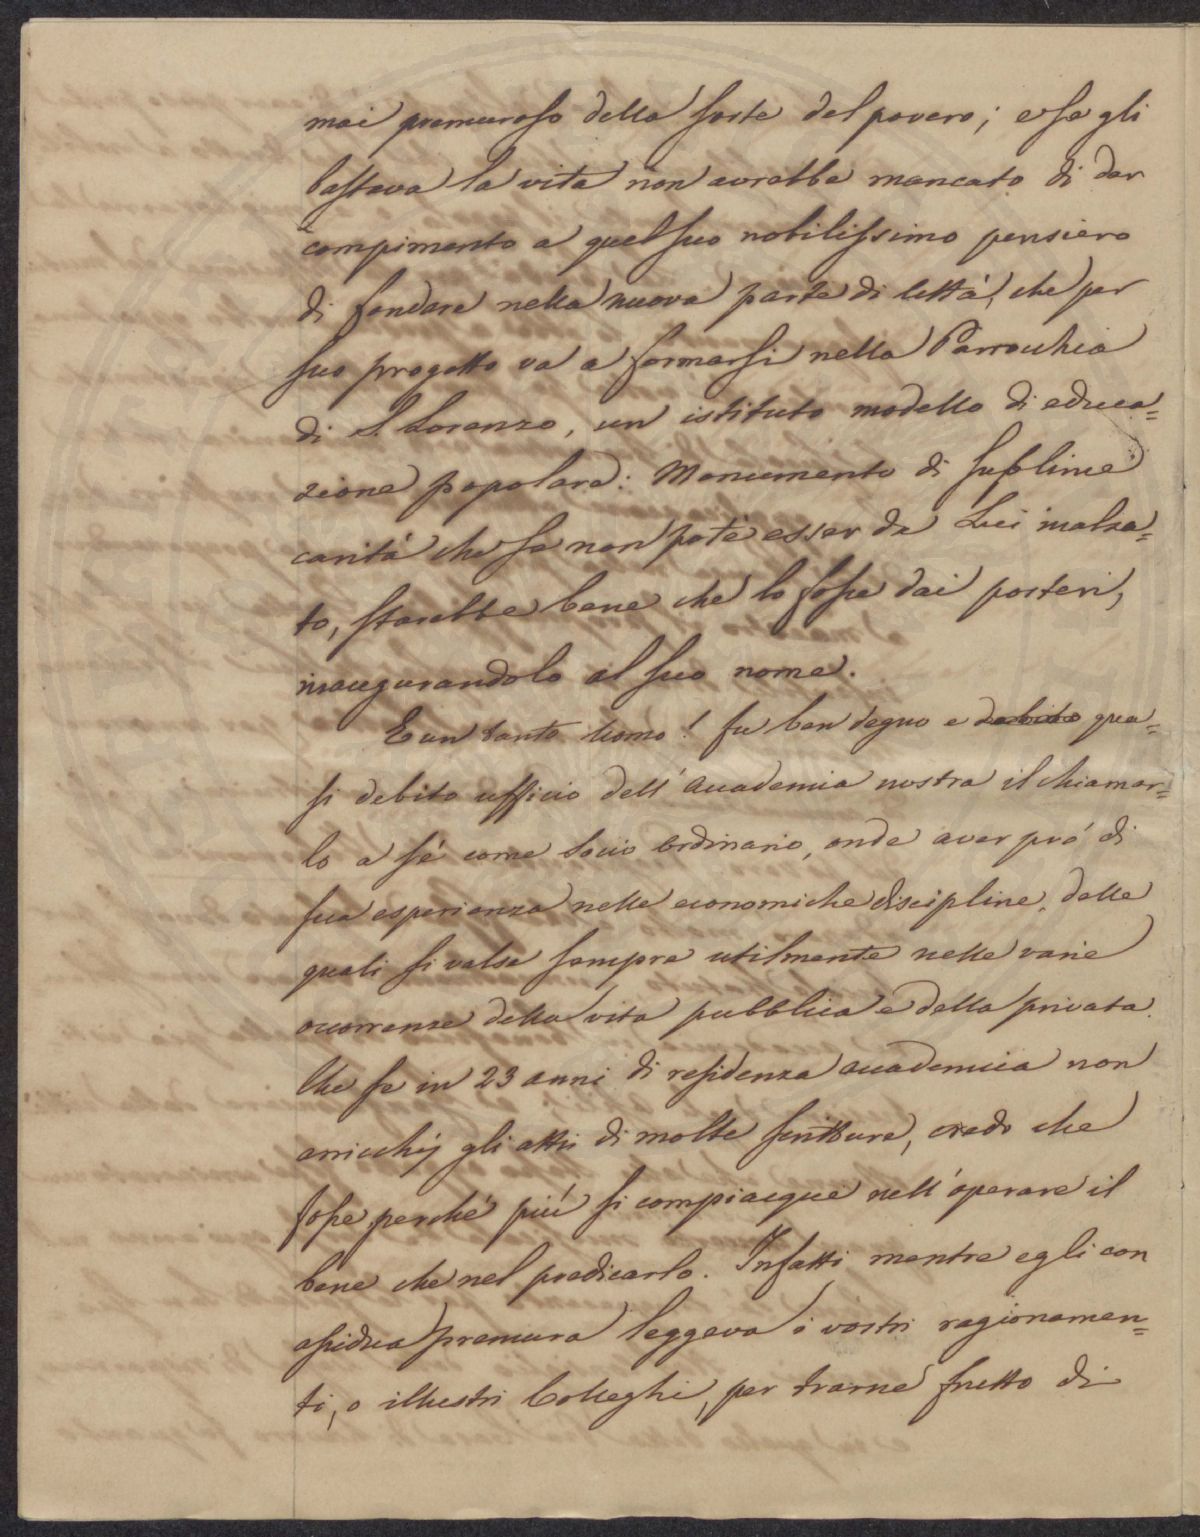 mai premuroso della sorte del povero; e se gli
bastava la vita non avrebbe mancato di dar
compimento a quel suo nobilissimo pensiero
di fondare nella nuova parte di Città, che per
suo progetto va a formarsi nella Parrochia
di S. Lorenzo, un istituto modello di educa=
zione popolare: Monumento di sublime
carità che se non potè esser da Lui inalza=
to, starebbe bene che lo fosse dai posteri,
inaugurandolo al suo nome.
E un tanto Uomo! fu ben degno e debito qua=
si debito ufficio dell'Accademia nostra il chiamar=
lo a sé come Socio Ordinario, onde aver pró di
sua esperienza nelle economiche discipline, delle
quali si valse sempre utilmente nelle varie
occorrenze della vita pubblica e della privata.
Che se in 23 anni di residenza accademica non
arricchij gli atti di molte scritture, credo che
fosse perché più si compiacque nell'operare il
bene che nel predicarlo. Infatti mentre egli con
assidua premura leggeva i vostri ragionamen=
ti, o illustri Colleghi, per trarne frutto di